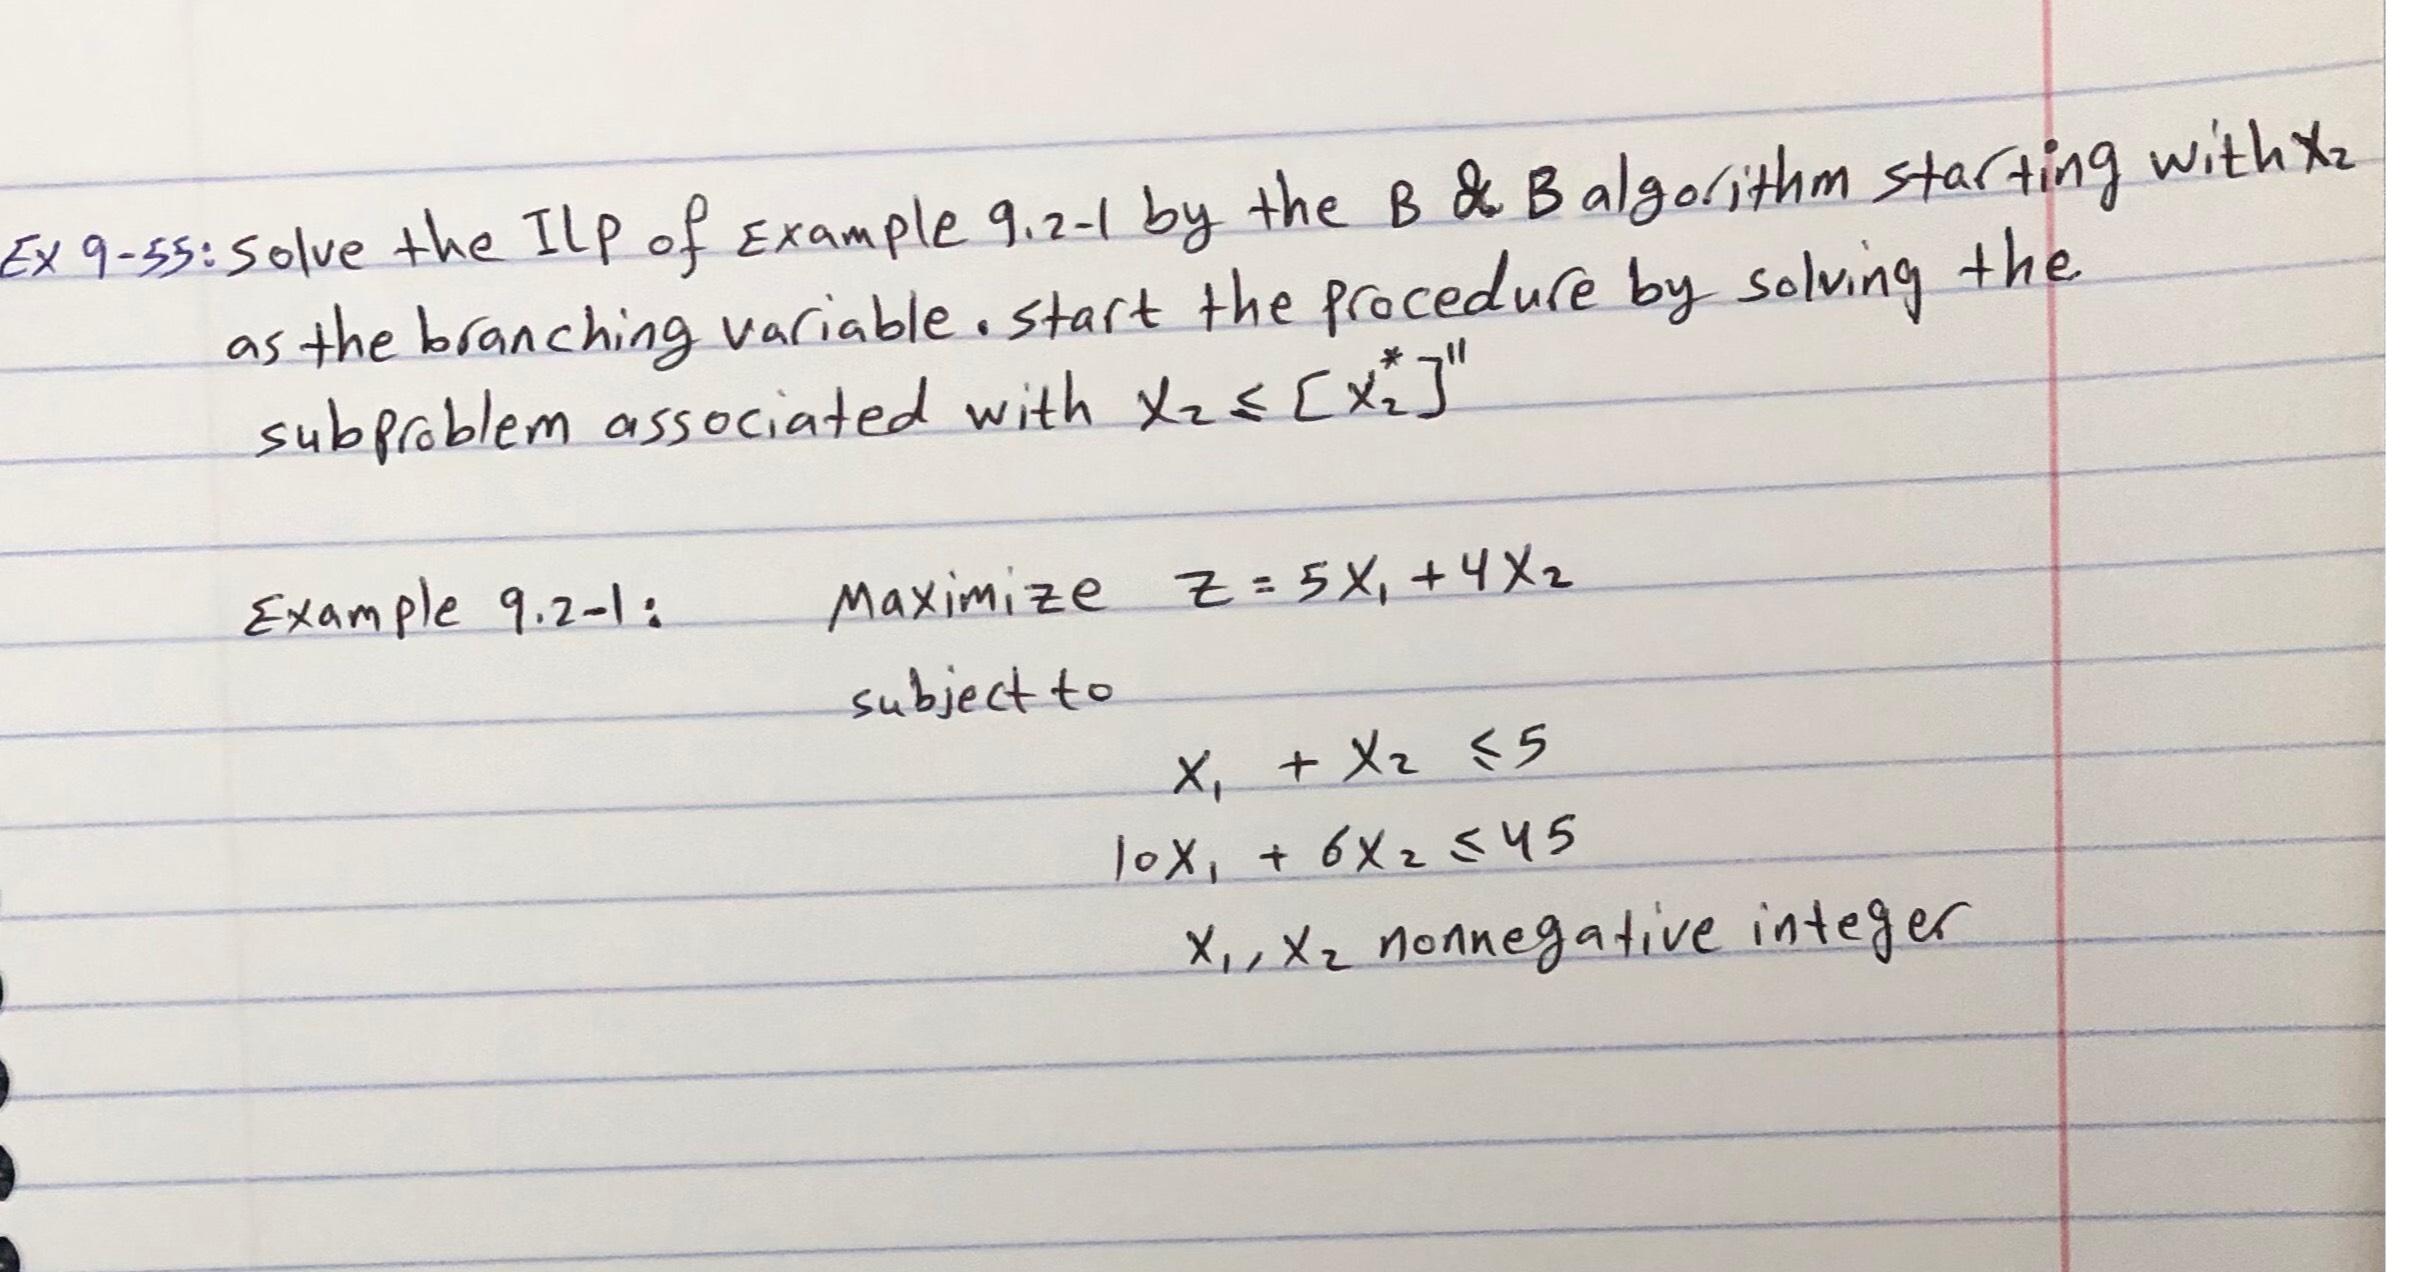 Ex 9-55: Solve the ILP of Example 9.2-1 by the B & B algorithm starting with X₂
as the branching variable. start the procedure by solving the
subproblem associated with X₂ ≤ [X₂*]"
Example 9.2-1: Maximize Z = 5X₁ + 4X₂
subject to
X₁ + X₂ ≤ 5
10X₁ + 6X₂ ≤ 45
X₁, X₂ nonnegative integer